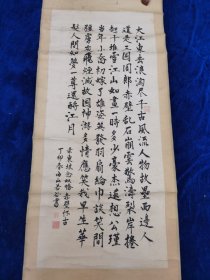 大江東去浪淘尽千古風流人物故壘西邊人
道是三國周郎赤壁乱石崩雲驚濤裂岸捲
起千堆雪江山如畫一時多少豪杰遥想公瑾
當年小喬初嫁了雄姿英發羽扇綸巾談笑間
强虜灰飛煙滅故國神游多情應笑我早生華
髮人間如夢一尊還酹江月
蘇東坡念奴嬌赤壁懷古
丁卯春
書